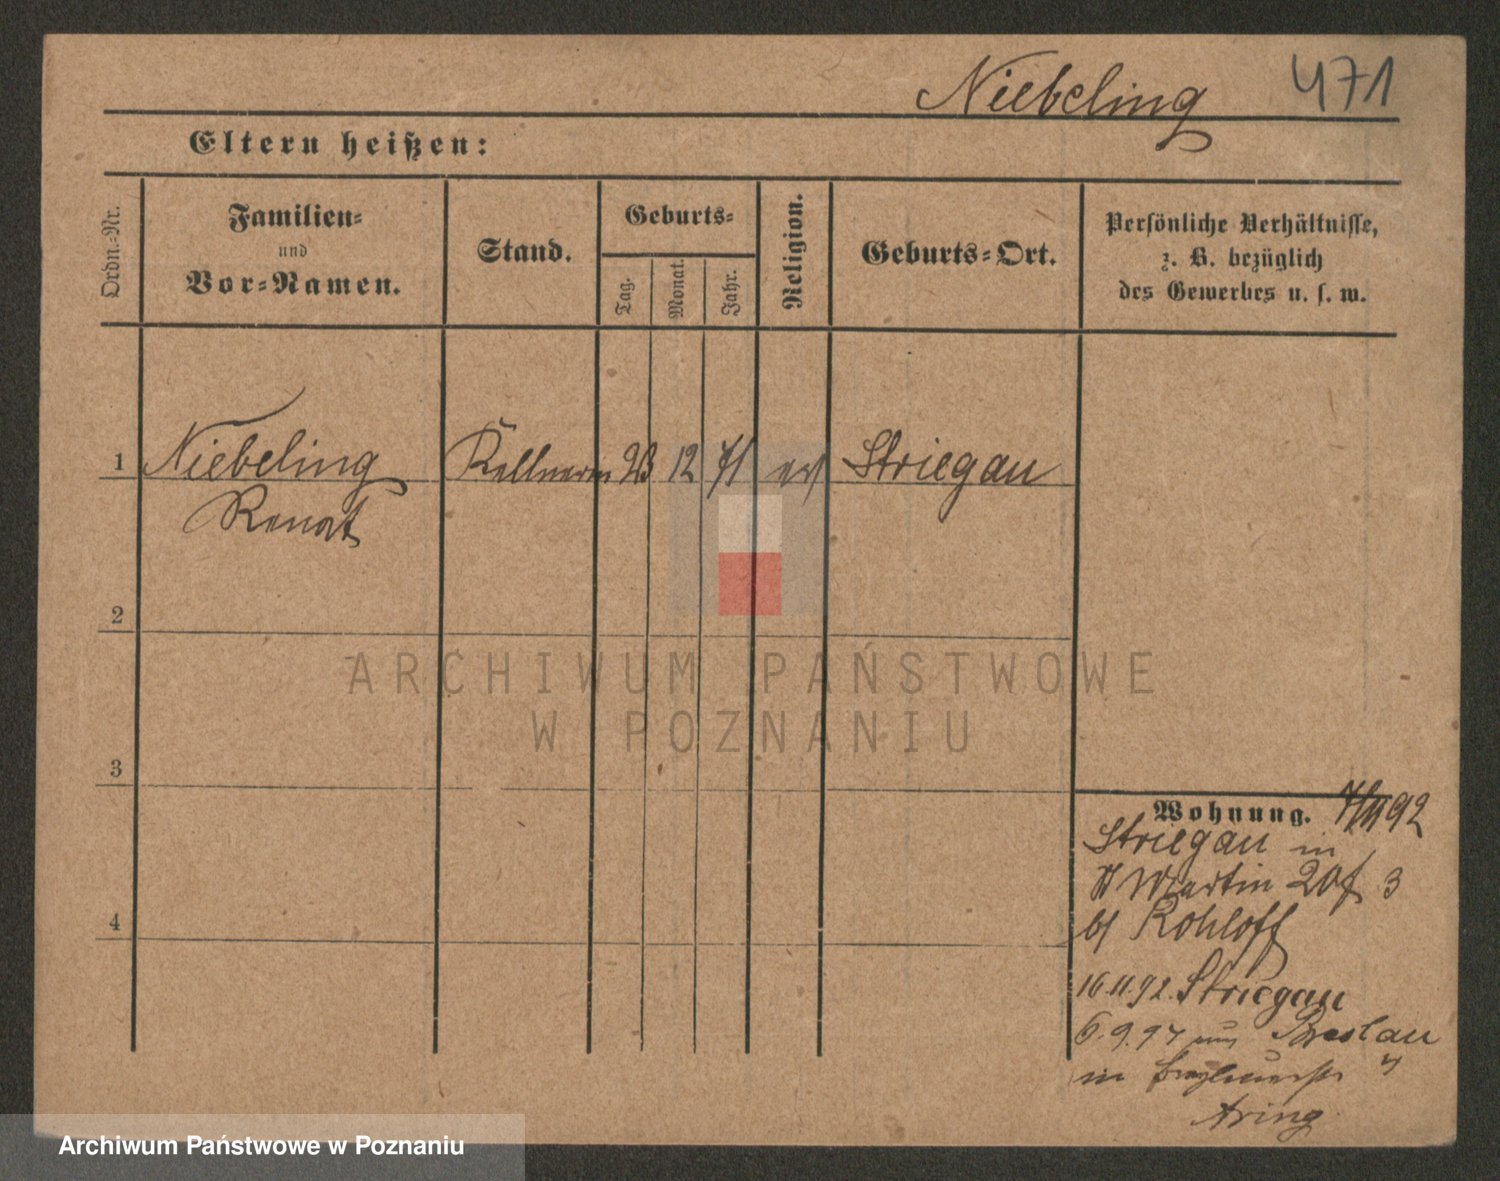 Niebeling 471
Eltern heißen:
Ordn.-Nr.
Familien-
und
Vor-Namen.
Stand.
Geburts-
Tag.
Monat.
Jahr.
Religion.
Geburts-Ort.
Persönliche Verhältnisse,
z. B. bezüglich
des Gewerbes u. s. w.
1 Niebeling Kellnerin 23 12 71 Striegau
Renat
2
3
4
Wohnung. 92
Striegau in
St Martin 20 f 3
b/ Rohloff
16.11.92. Striegau
6.9.97 Breslau
in
Aring
ARCHIWUM PAŃSTWOWE
W POZNANIU
Archiwum Państwowe w Poznaniu